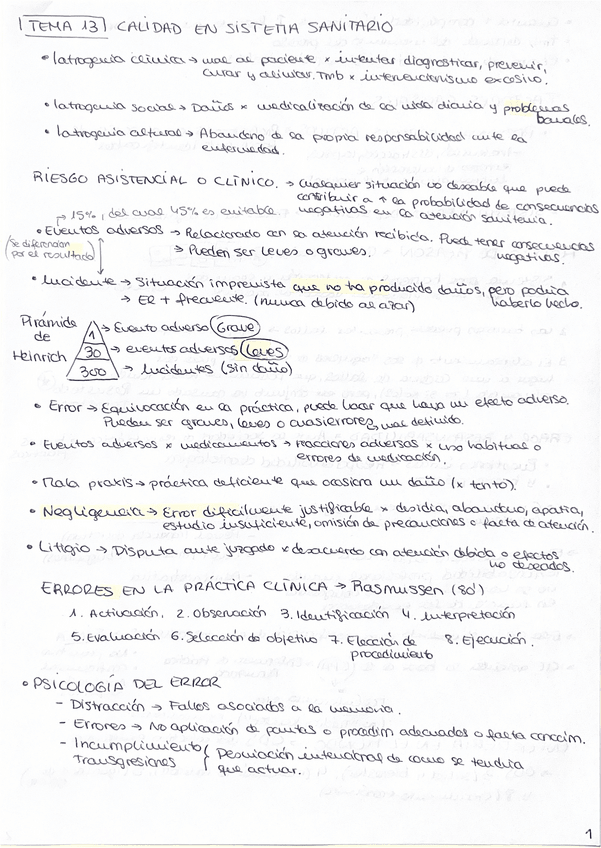 TEMA 13 CALIDAD EN SISTEMA SANITARIO
• Iatrogenia clínica → mal al paciente x intentar diagnosticar, prevenir,
curar y aliviar. Tmb x intervencionismo excesivo.
• Iatrogenia social → Daños x medicalización de la vida diaria y problemas
banales.
• Iatrogenia cultural → Abandono de la propia responsabilidad ante la
enfermedad.
RIESGO ASISTENCIAL O CLÍNICO. → Cualquier situación no deseable que puede
contribuir a ↑ la probabilidad de consecuencias
negativas en la atención sanitaria.
→ 15%, del cual 45% es evitable.
• Eventos adversos → Relacionado con la atención recibida. Puede tener consecuencias
negativas.
→ Pueden ser leves o graves.
(Se diferencian
por el resultado)
• Incidente → Situación imprevista que no ha producido daños, pero podría
haberlo hecho.
→ ER + frecuente. (nunca debido al azar)
Pirámide
de
Heinrich
1 → Evento adverso Grave
30 → eventos adversos leves
300 → Incidentes (sin daño)
• Error → Equivocación en la práctica, puede hacer que haya un efecto adverso.
Pueden ser graves, leves o cuasierrores → mal definido.
• Eventos adversos x medicamentos → reacciones adversas x uso habitual o
errores de medicación.
• Mala praxis → práctica deficiente que ocasiona un daño (x tanto).
• Negligencia → Error difícilmente justificable x desidia, abandono, apatía,
estudio insuficiente, omisión de precauciones o falta de atención.
• Litigio → Disputa ante juzgado x desacuerdo con atención debida o efectos
no deseados.
ERRORES EN LA PRÁCTICA CLÍNICA → Rasmussen (80')
1. Activación. 2. Observación 3. Identificación 4. Interpretación
5. Evaluación 6. Selección de objetivo 7. Elección de
procedimiento
8. Ejecución.
• PSICOLOGÍA DEL ERROR
- Distracción → Fallos asociados a la memoria.
- Errores → No aplicación de pautas o procedim adecuados o falta conocim.
- Incumplimiento
Transgresiones
{ Desviación intencional de como se tendría
que actuar.
1